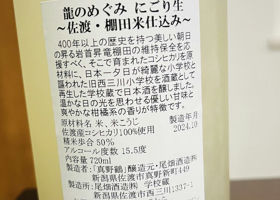 龍のめぐみ にごり生
～佐渡・棚田米仕込み～
400年以上の歴史を持つ美しい朝日
の昇る岩首昇竜棚田の維持保全を応
援すべく、そこで育まれたコシヒカリを原
材料に、日本一夕日が綺麗な小学校と
謳われた旧西三川小学校を酒蔵として
再生した学校蔵で日本酒を醸しました。
温かな日の光を思わせる優しい甘味と
爽やかな柑橘系の香りが特徴です。
原材料名 米、米こうじ
佐渡産コシヒカリ100%使用
精米歩合 50%
アルコール度数 15.5度
内容量 720ml
製造年月
2024.10
製造者:「真野鶴」醸造元・尾畑酒造㈱
新潟県佐渡市真野新町449
製造所:尾畑酒造㈱ 学校蔵
新潟県佐渡市西三川1337-1